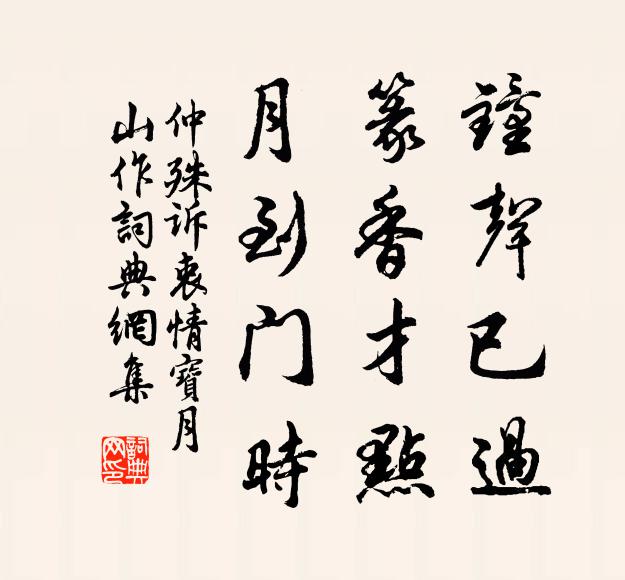 鐘聲已過
篆香才點
月到門時
仲殊訴衷情寶月
山作詞典網集
詞典網印